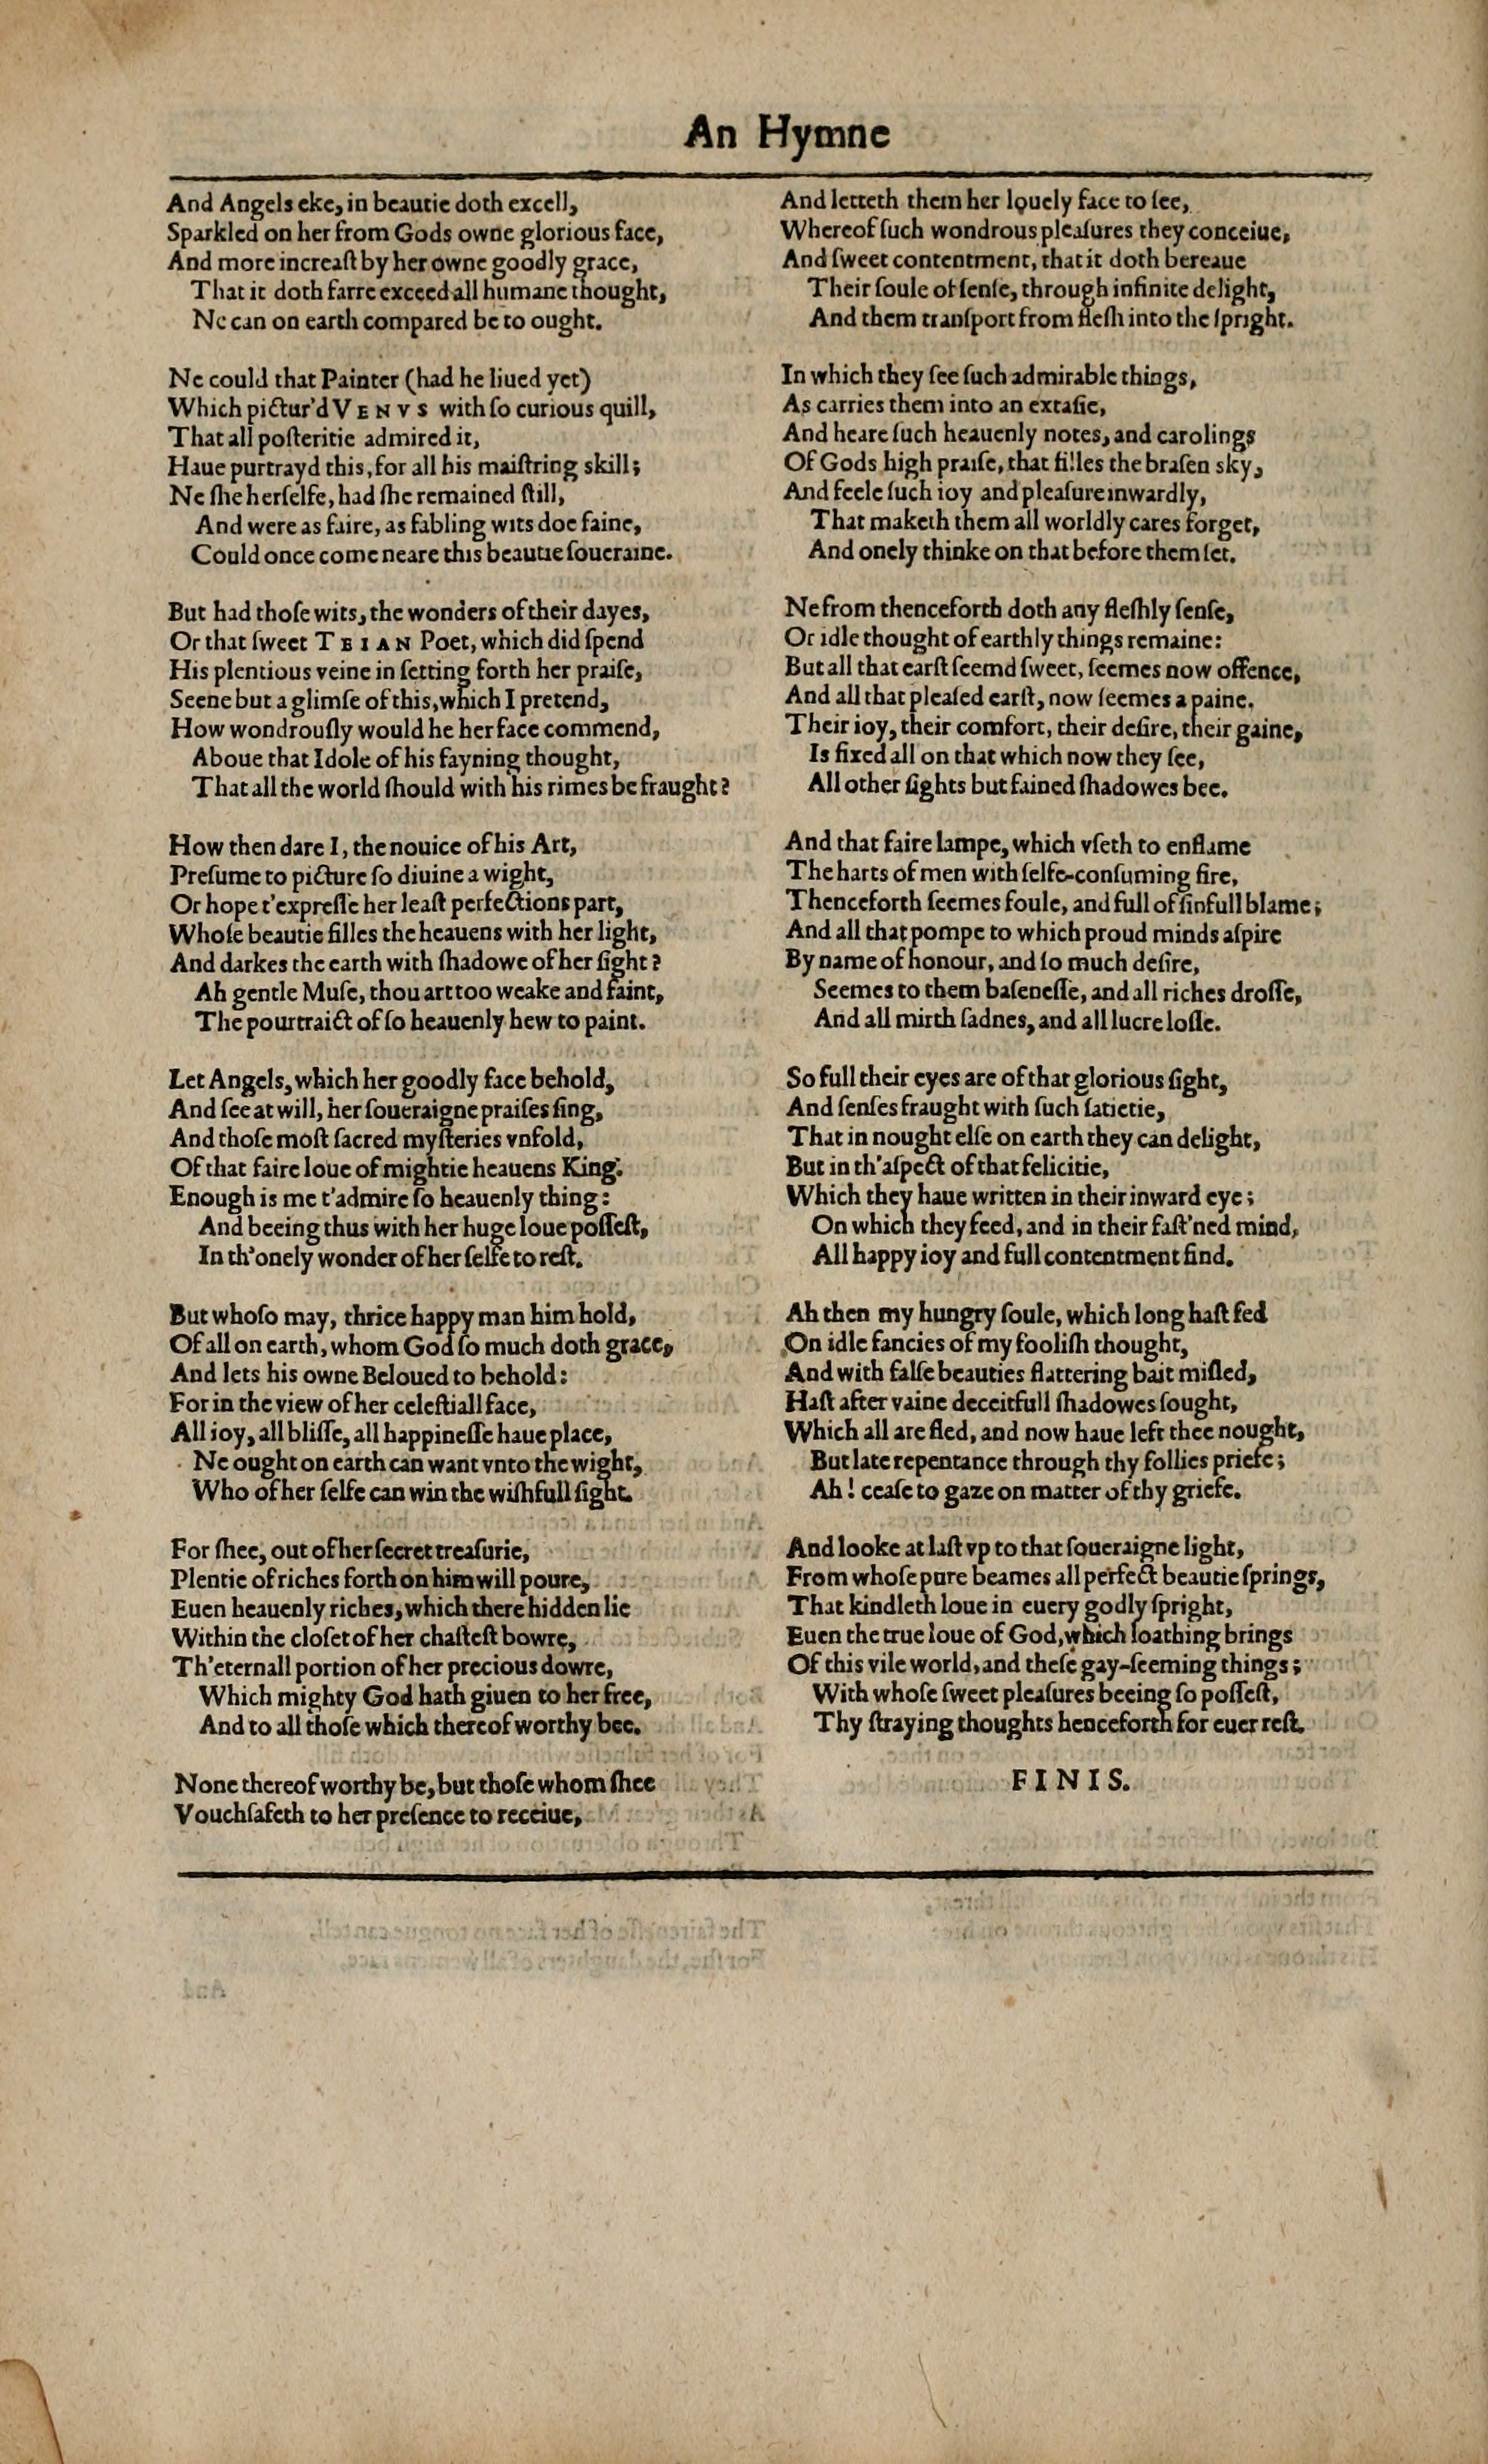 An Hymne
And Angels eke, in beautie doth excell,
Sparkled on her from Gods owne glorious face,
And more increaſt by her owne goodly grace,
That it doth farre exceed all humane thought,
Ne can on earth compared be to ought.
Ne could that Painter (had he liued yet)
Which pictur'd VENVS with ſo curious quill,
That all poſteritie admired it,
Haue purtrayd this, for all his maiſtring skill;
Ne ſhe herſelfe, had ſhe remained ſtill,
And were as faire, as fabling wits doe faine,
Could once come neare this beautie ſoueraine.
But had thoſe wits, the wonders of their dayes,
Or that ſweet TEIAN Poet, which did ſpend
His plentious veine in ſetting forth her praiſe,
Seene but a glimſe of this, which I pretend,
How wondrouſly would he her face commend,
Aboue that Idole of his fayning thought,
That all the world ſhould with his rimes be fraught?
How then dare I, the nouice of his Art,
Preſume to picture ſo diuine a wight,
Or hope t'expreſſe her leaſt perfections part,
Whoſe beautie filles the heauens with her light,
And darkes the earth with ſhadowe of her ſight?
Ah gentle Muſe, thou art too weake and faint,
The pourtraict of ſo heauenly hew to paint.
Let Angels, which her goodly face behold,
And ſee at will, her ſoueraigne praiſes ſing,
And thoſe moſt ſacred myſteries vnfold,
Of that faire loue of mightie heauens King.
Enough is me t'admire ſo heauenly thing:
And beeing thus with her huge loue poſſeſt,
In th'onely wonder of her ſelfe to reſt.
But whoſo may, thrice happy man him hold,
Of all on earth, whom God ſo much doth grace,
And lets his owne Beloued to behold:
For in the view of her celeſtiall face,
All ioy, all bliſſe, all happineſſe haue place,
Ne ought on earth can want vnto the wight,
Who of her ſelfe can win the wiſhfull ſight.
For ſhee, out of her ſecret treaſurie,
Plentie of riches forth on him will poure,
Euen heauenly riches, which there hidden lie
Within the cloſet of her chaſteſt bowre,
Th'eternall portion of her precious dowre,
Which mighty God hath giuen to her free,
And to all thoſe which thereof worthy bee.
None thereof worthy be, but thoſe whom ſhee
Vouchſafeth to her preſence to receiue,
And letteth them her louely face to ſee,
Whereof ſuch wondrous pleaſures they conceiue,
And ſweet contentment, that it doth bereaue
Their ſoule of ſenſe, through infinite delight,
And them tranſport from fleſh into the ſpright.
In which they ſee ſuch admirable things,
As carries them into an extaſie,
And heare ſuch heauenly notes, and carolings
Of Gods high praiſe, that filles the braſen sky,
And feele ſuch ioy and pleaſure inwardly,
That maketh them all worldly cares forget,
And onely thinke on that before them ſet.
Ne from thenceforth doth any fleſhly ſenſe,
Or idle thought of earthly things remaine:
But all that earſt ſeemd ſweet, ſeemes now offence,
And all that pleaſed earſt, now ſeemes a paine.
Their ioy, their comfort, their deſire, their gaine,
Is fixed all on that which now they ſee,
All other ſights but fained ſhadowes bee.
And that faire lampe, which vſeth to enflame
The harts of men with ſelfe-conſuming fire,
Thenceforth ſeemes foule, and full of ſinfull blame;
And all that pompe to which proud minds aſpire
By name of honour, and ſo much deſire,
Seemes to them baſeneſſe, and all riches droſſe,
And all mirth ſadnes, and all lucre loſſe.
So full their eyes are of that glorious ſight,
And ſenſes fraught with ſuch ſatietie,
That in nought elſe on earth they can delight,
But in th'aſpect of that felicitie,
Which they haue written in their inward eye;
On which they feed, and in their faſt'ned mind,
All happy ioy and full contentment find.
Ah then my hungry ſoule, which long haſt fed
On idle fancies of my fooliſh thought,
And with falſe beauties flattering bait miſled,
Haſt after vaine deceitfull ſhadowes ſought,
Which all are fled, and now haue left thee nought,
But late repentance through thy follies priefe;
Ah! ceaſe to gaze on matter of thy griefe.
And looke at laſt vp to that ſoueraigne light,
From whoſe pure beames all perfect beautie ſprings,
That kindleth loue in euery godly ſpright,
Euen the true loue of God, which loathing brings
Of this vile world, and theſe gay-ſeeming things;
With whoſe ſweet pleaſures beeing ſo poſſeſt,
Thy ſtraying thoughts henceforth for euer reſt.
FINIS.